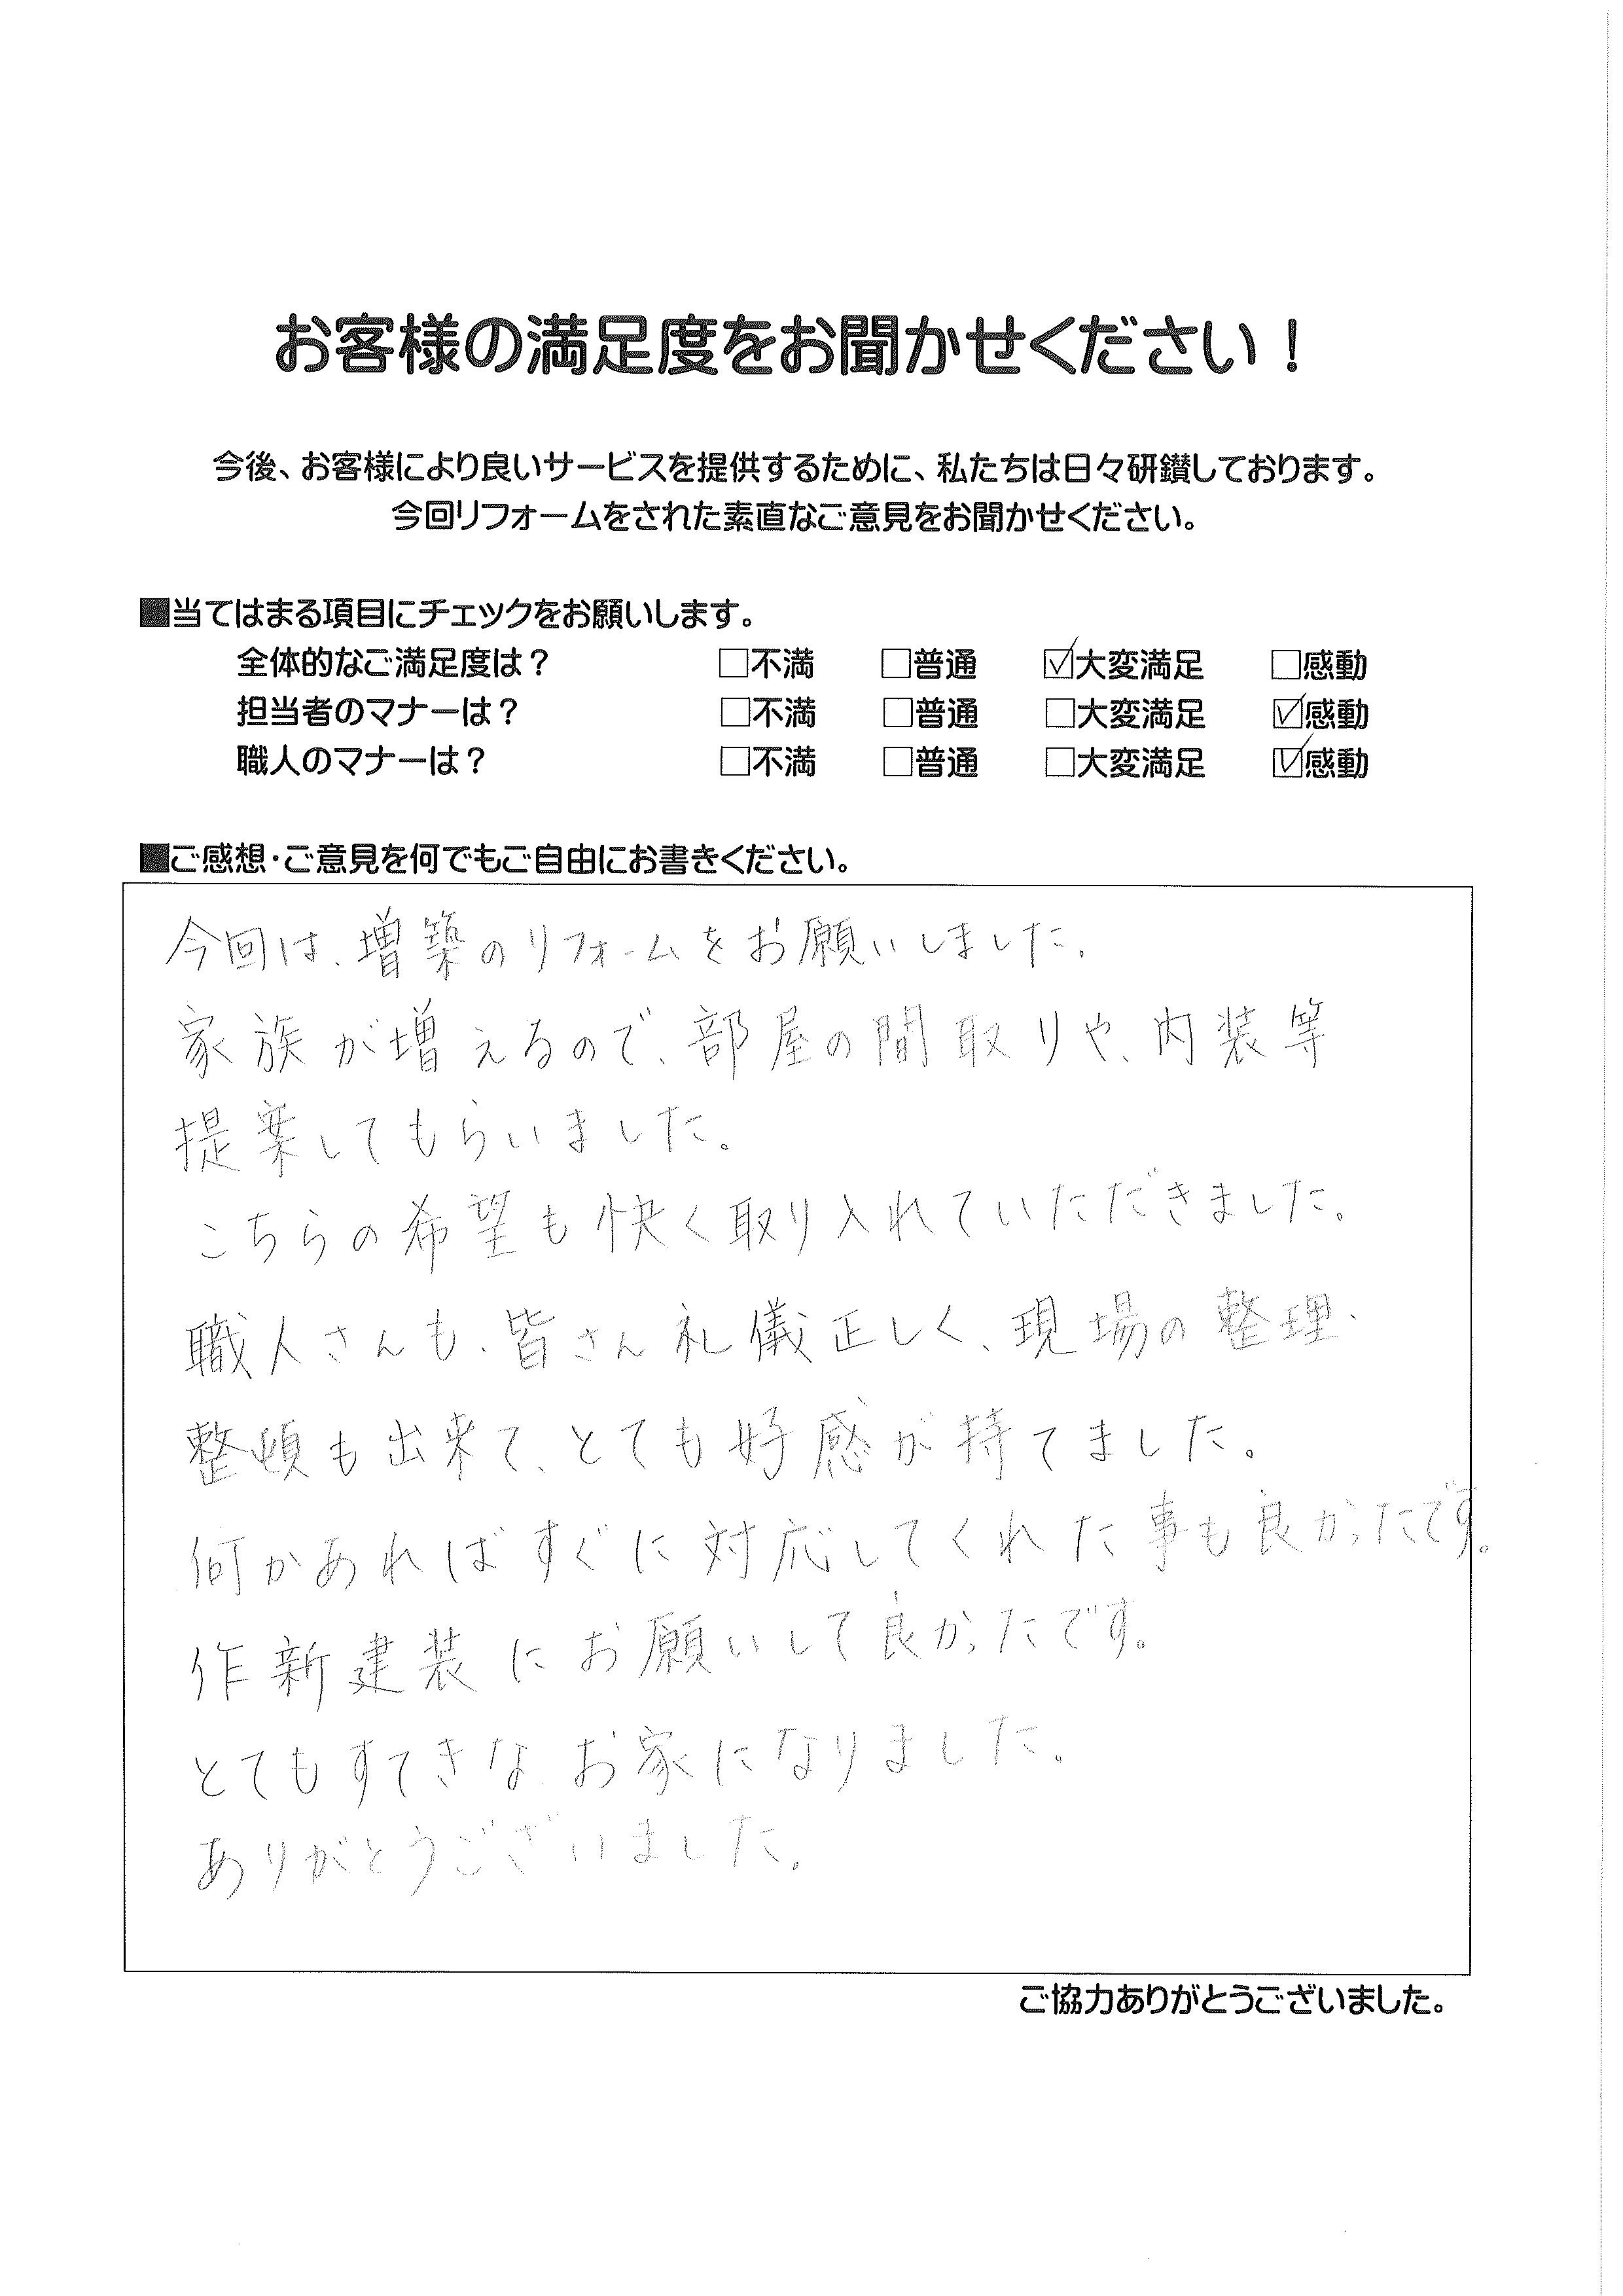 お客様の満足度をお聞かせください！
今後、お客様により良いサービスを提供するために、私たちは日々研鑚しております。
今回リフォームをされた素直なご意見をお聞かせください。
■当てはまる項目にチェックをお願いします。
全体的なご満足度は？ □不満 □普通 ☑大変満足 □感動
担当者のマナーは？ □不満 □普通 □大変満足 ☑感動
職人のマナーは？ □不満 □普通 □大変満足 ☑感動
■ご感想・ご意見を何でもご自由にお書きください。
今回は、増築のリフォームをお願いしました。
家族が増えるので、部屋の間取りや、内装等
提案してもらいました。
こちらの希望も快く取り入れていただきました。
職人さんも、皆さん礼儀正しく、現場の整理・
整頓も出来て、とても好感が持てました。
何かあればすぐに対応してくれた事も良かったです。
作新建装にお願いして良かったです。
とてもすてきなお家になりました。
ありがとうございました。
ご協力ありがとうございました。